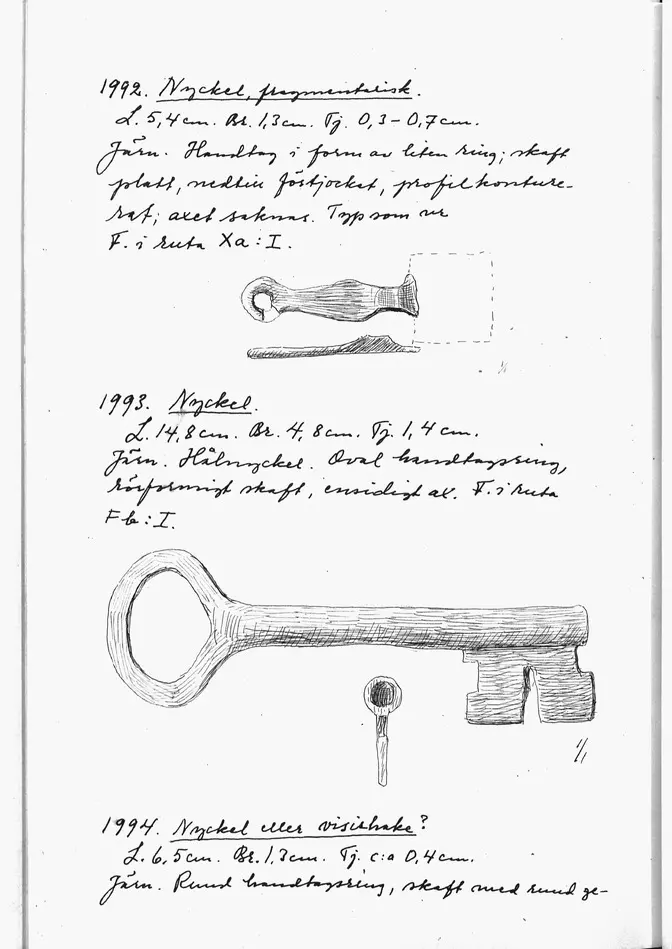 1992. Nyckel, fragmentarisk.
L. 5,4 cm. Br. 1,3 cm. Tj. 0,3-0,7 cm.
Järn. Handtag i form av liten ring; skaft
platt, nedtill förtjockat, profilkonture-
rat; axet saknas. Typ som
F. i ruta Xa : I.
1993. Nyckel.
L. 14,8 cm. Br. 4,8 cm. Tj. 1,4 cm.
Järn. Hålnyckel. Oval handtagsring,
rörformigt skaft, ensidigt ax. F. i ruta
F b : I.
1/1
1994. Nyckel eller visirhake?
L. 6,5 cm. Br. 1,3 cm. Tj. c:a 0,4 cm.
Järn. Rund handtagsring, skaft med rund ge-